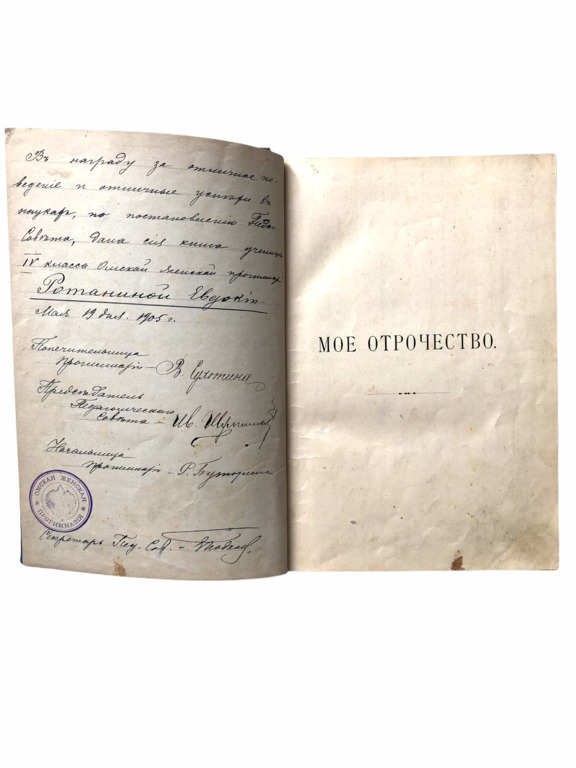 Въ награду за отличное по-
веденіе и отличные успѣхи въ
наукахъ, по постановленію Педаг.
Совѣта, дана сія книга ученицѣ
IV класса Омской женской прогимназіи
Ротаниной Евдокіи
Мая 19 дня 1905 г.
Попечительница
прогимназіи – В. Сухотина
Предсѣдатель
Педагогическаго
Совѣта – Ив.
Начальница
прогимназіи – Р.
ОМСКАЯ ЖЕНСКАЯ
ПРОГИМНАЗІЯ
Секретарь Пед. Сов. –
МОЕ ОТРОЧЕСТВО.